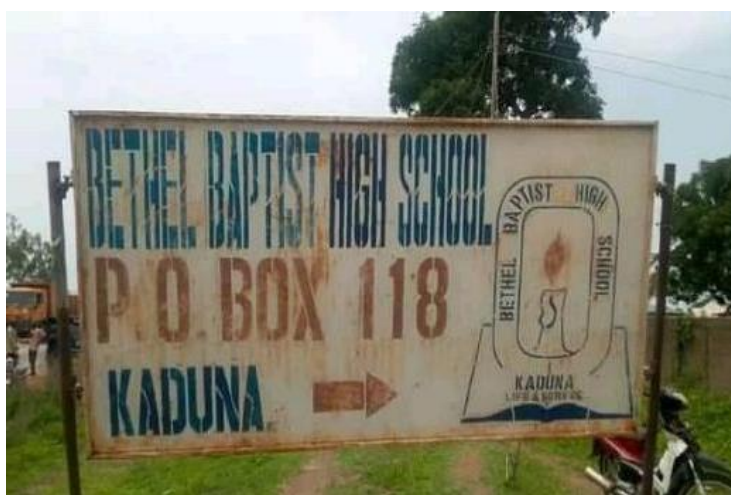 BETHEL BAPTIST HIGH SCHOOL
P.O. BOX 118
KADUNA
BETHEL BAPTIST HIGH SCHOOL
KADUNA
LIFE &